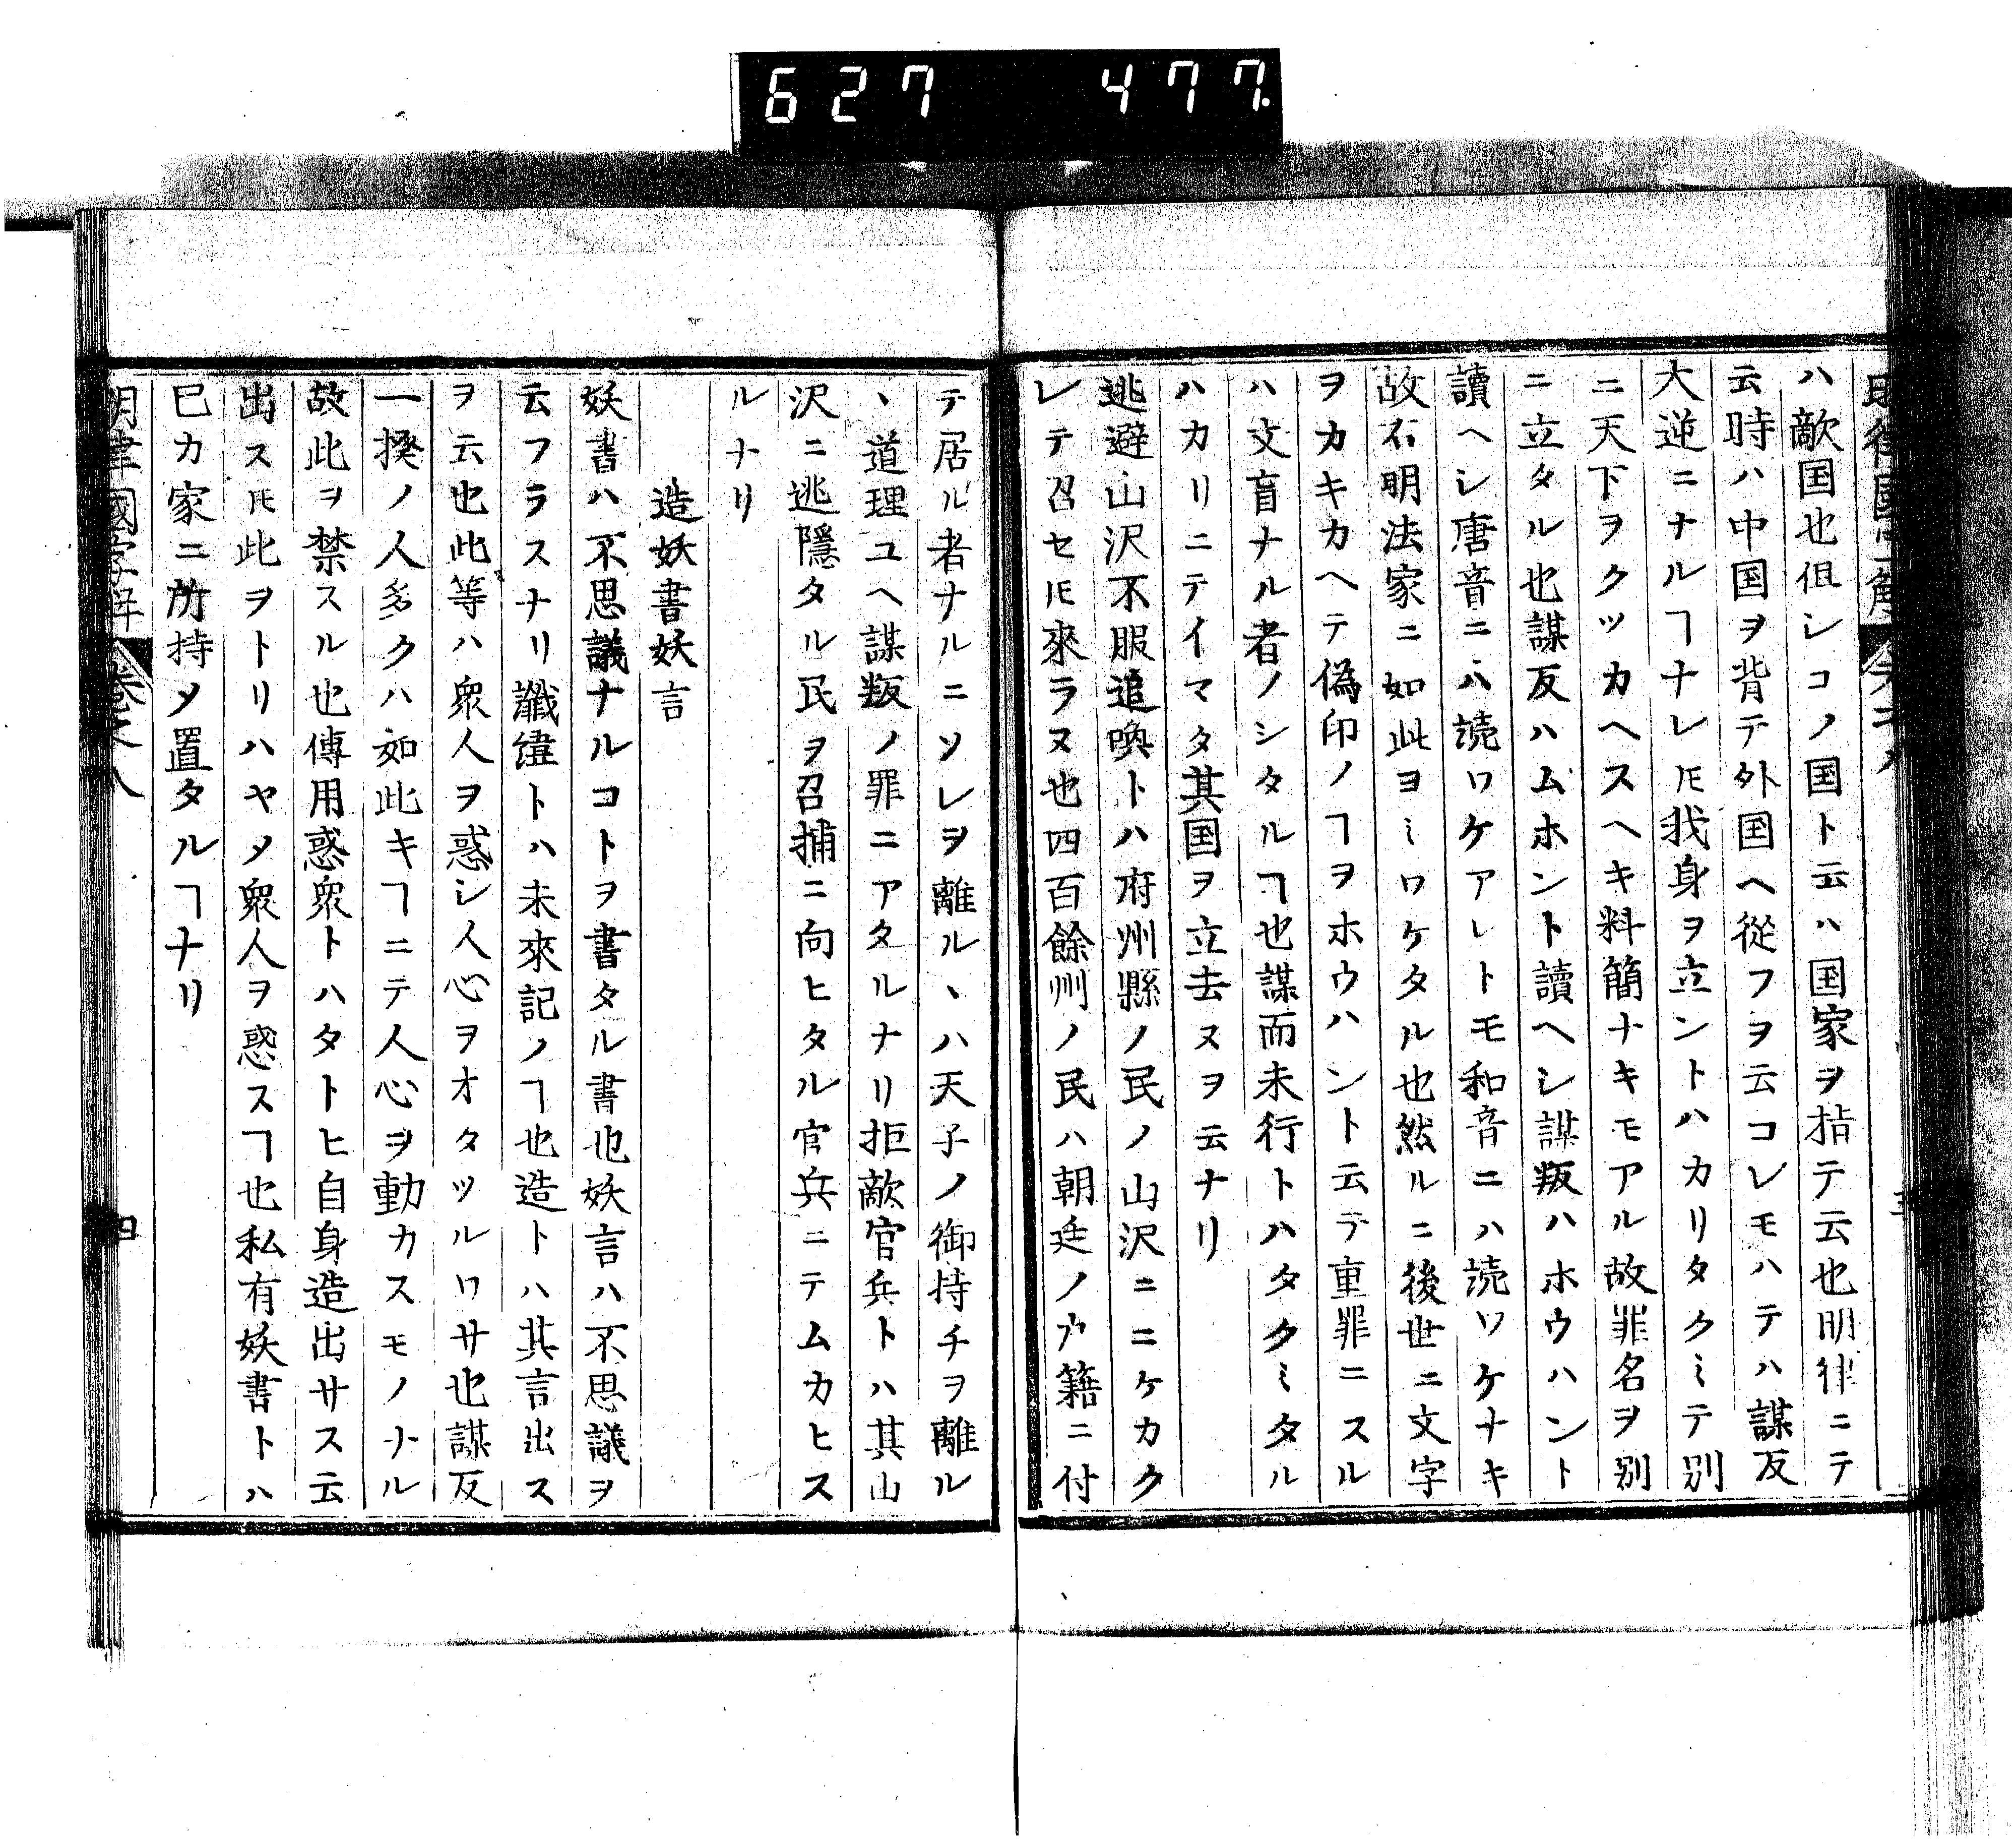 627 477
ハ敵国也但シコノ国ト云ハ国家ヲ指テ云也明律ニテ
云時ハ中国ヲ背テ外国ヘ從フヲ云コレモハテハ謀反
大逆ニナルヿナレ𪜈我身ヲ立ントハカリタクミテ別
ニ天下ヲクツカヘスヘキ料簡ナキモアル故罪名ヲ別
ニ立タル也謀反ハムホント讀ヘシ謀叛ハホウハント
讀ヘシ唐音ニハ読ワケアレトモ和音ニハ読ワケナキ
故石明法家ニ如此ヨミワケタル也然ルニ後世ニ文字
ヲカキカヘテ偽印ノヿヲホウハント云テ重罪ニスル
ハ文盲ナル者ノシタルヿ也謀而未行トハタクミタル
ハカリニテイマタ其国ヲ立去ヌヲ云ナリ
逃避山沢不服追喚トハ府州縣ノ民ノ山沢ニニケカク
レテ召セ𪜈來ラヌ也四百餘州ノ民ハ朝廷ノ戸籍ニ付
テ居ル者ナルニソレヲ離ルヽハ天子ノ御持チヲ離ル
ヽ道理ユヘ謀叛ノ罪ニアタルナリ拒敵官兵トハ其山
沢ニ逃隱タル民ヲ召捕ニ向ヒタル官兵ニテムカヒス
ルナリ
造妖書妖言
妖書ハ不思議ナルコトヲ書タル書也妖言ハ不思議ヲ
云フラスナリ讖緯トハ未來記ノヿ也造トハ其言出ス
ヲ云也此等ハ衆人ヲ惑シ人心ヲオタツルワサ也謀反
一揆ノ人多クハ如此キヿニテ人心ヲ動カスモノナル
故此ヲ禁スル也傳用惑衆トハタトヒ自身造出サス云
出ス𪜈此ヲトリハヤメ衆人ヲ惑スヿ也私有妖書トハ
巳カ家ニ所持メ置タルヿナリ
明律國字解 卷之八 四